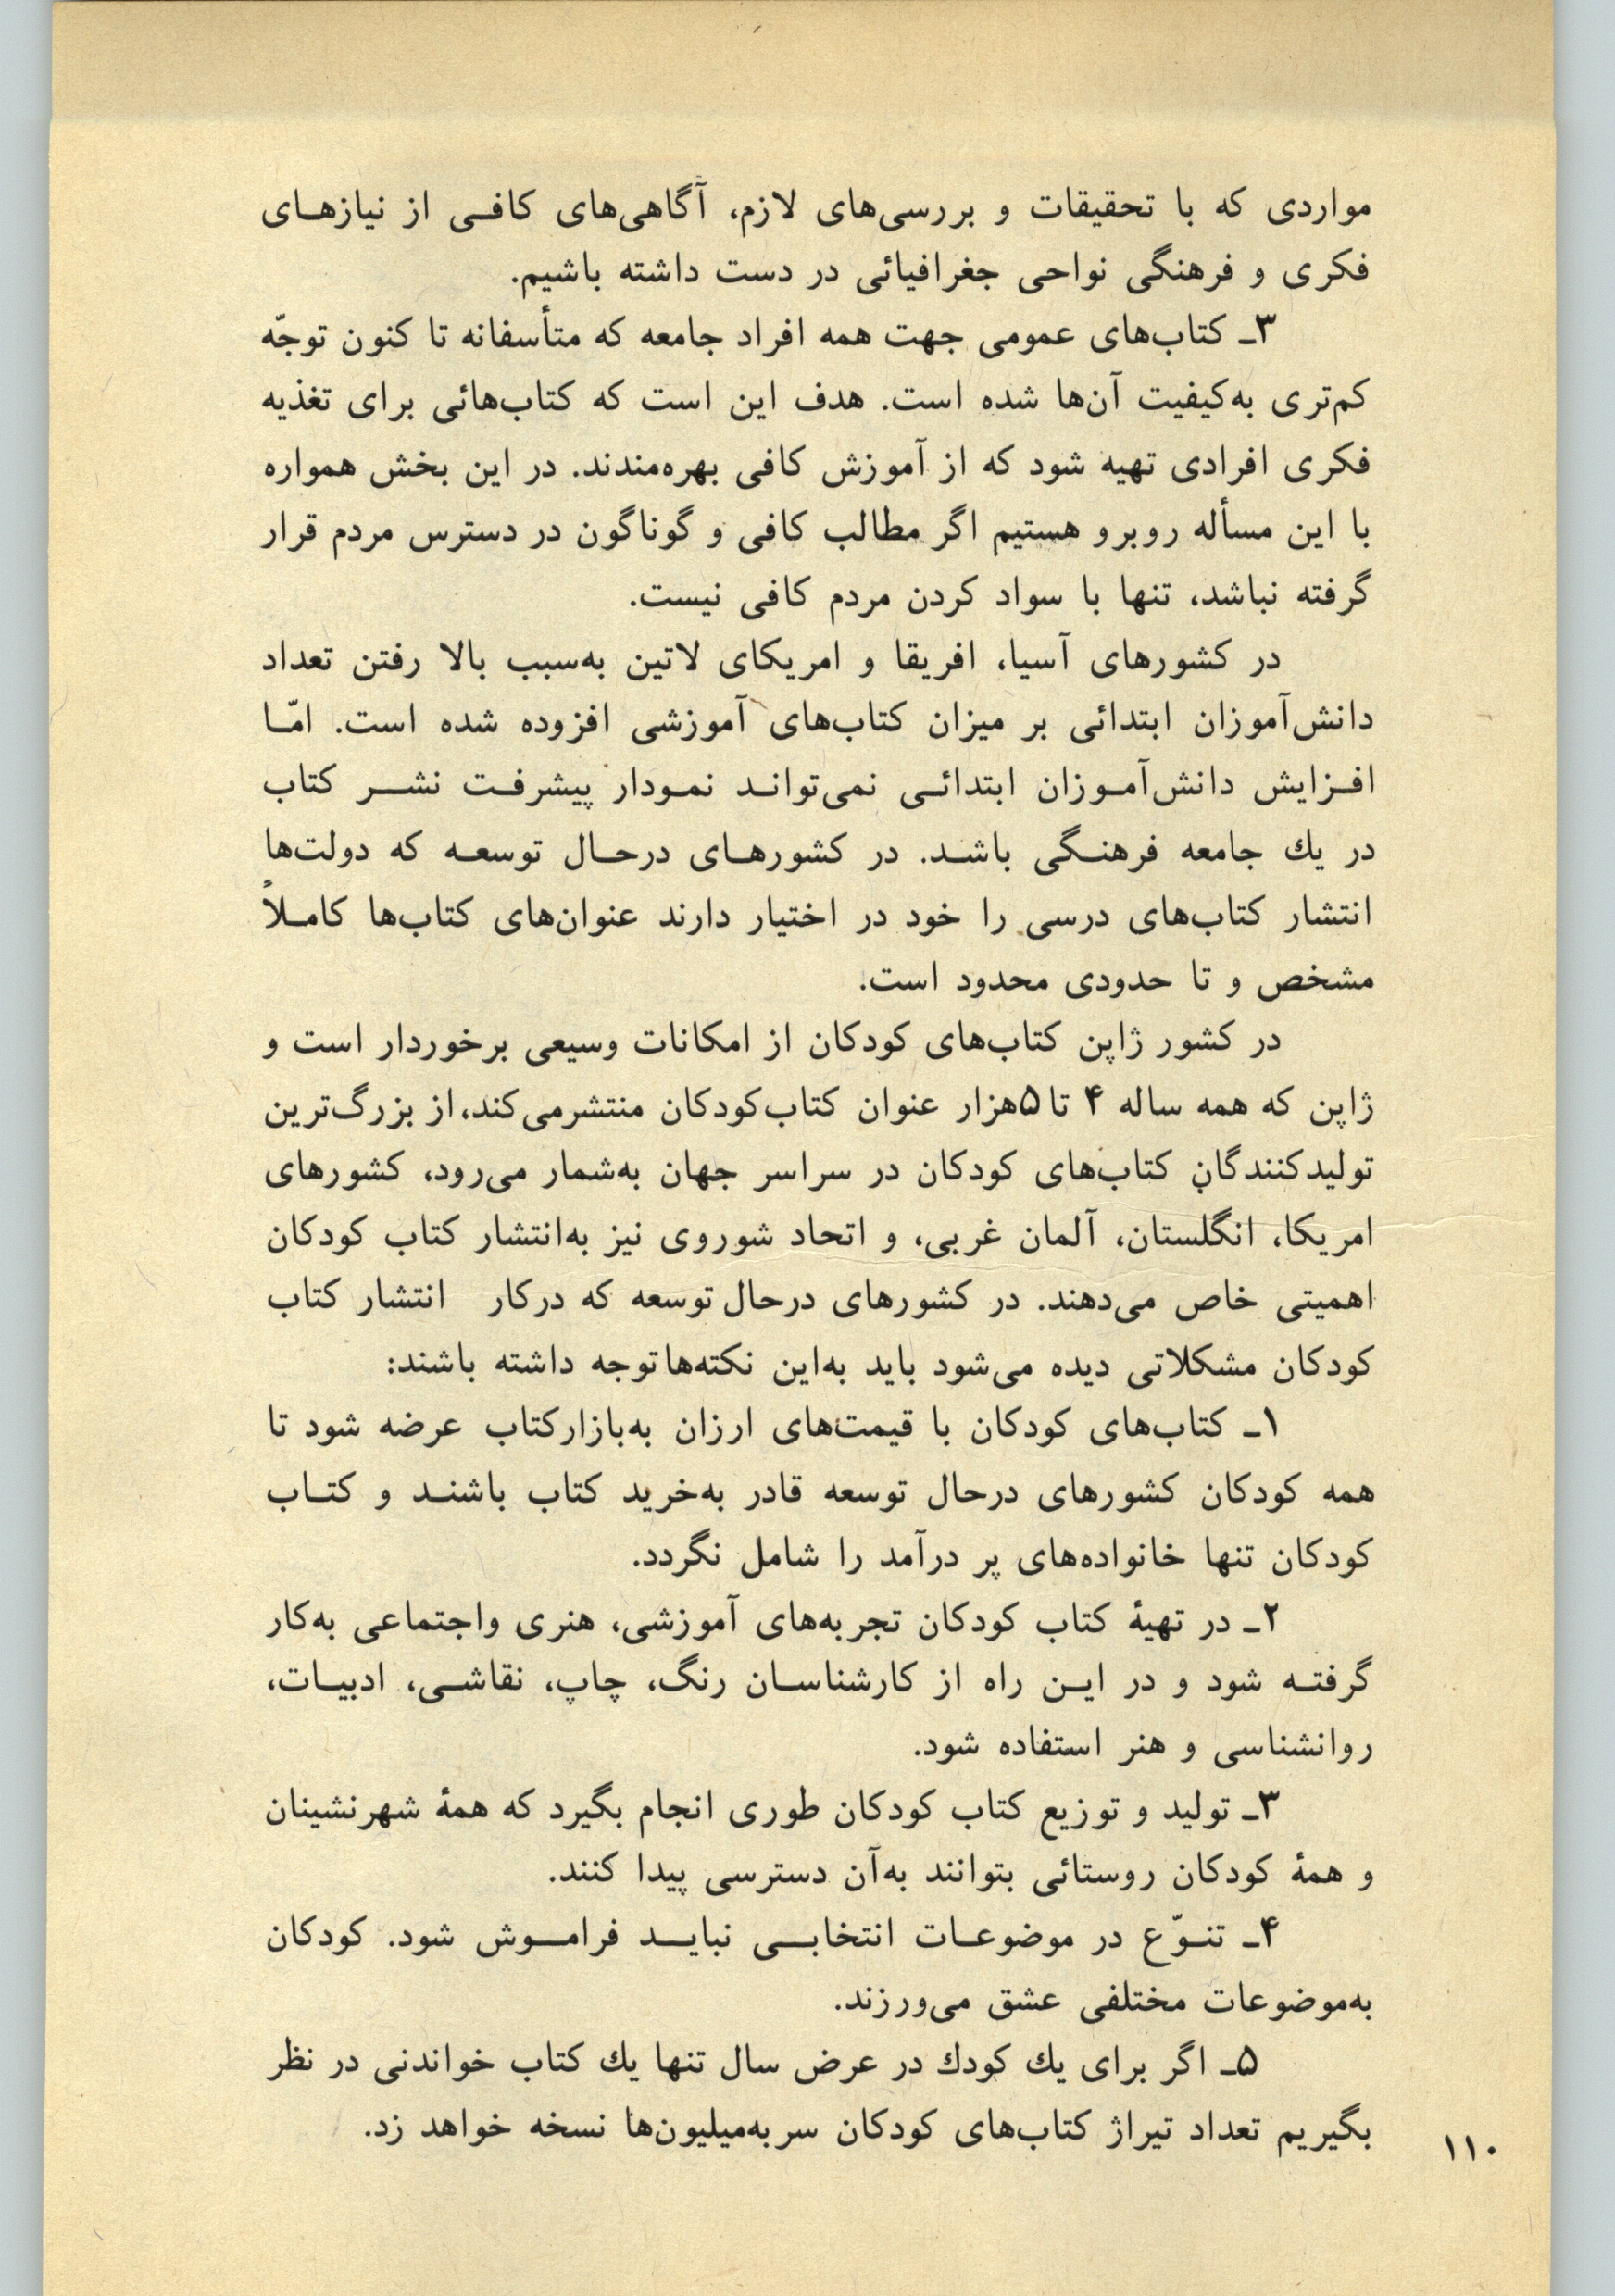 مواردی که با تحقیقات و بررسی‌های لازم، آگاهی‌های کافی از نیازهای
فکری و فرهنگی نواحی جغرافیائی در دست داشته باشیم.
۳ـ کتاب‌های عمومی جهت همه افراد جامعه که متأسفانه تا کنون توجّه
کم‌تری به‌کیفیت آن‌ها شده است. هدف این است که کتاب‌هائی برای تغذیه
فکری افرادی تهیه شود که از آموزش کافی بهره‌مندند. در این بخش همواره
با این مسأله روبرو هستیم اگر مطالب کافی و گوناگون در دسترس مردم قرار
گرفته نباشد، تنها با سواد کردن مردم کافی نیست.
در کشورهای آسیا، افریقا و امریکای لاتین به‌سبب بالا رفتن تعداد
دانش‌آموزان ابتدائی بر میزان کتاب‌های آموزشی افزوده شده است. امّا
افزایش دانش‌آموزان ابتدائی نمی‌تواند نمودار پیشرفت نشر کتاب
در یك جامعه فرهنگی باشد. در کشورهای درحال توسعه که دولت‌ها
انتشار کتاب‌های درسی را خود در اختیار دارند عنوان‌های کتاب‌ها کاملاً
مشخص و تا حدودی محدود است.
در کشور ژاپن کتاب‌های کودکان از امکانات وسیعی برخوردار است و
ژاپن که همه ساله ۴ تا ۵هزار عنوان کتاب‌کودکان منتشرمی‌کند، از بزرگ‌ترین
تولیدکنندگانِ کتاب‌های کودکان در سراسر جهان به‌شمار می‌رود، کشورهای
امریکا، انگلستان، آلمان غربی، و اتحاد شوروی نیز به‌انتشار کتاب کودکان
اهمیتی خاص می‌دهند. در کشورهای درحال توسعه که درکار انتشار کتاب
کودکان مشکلاتی دیده می‌شود باید به‌این نکته‌ها توجه داشته باشند:
۱ـ کتاب‌های کودکان با قیمت‌های ارزان به‌بازارکتاب عرضه شود تا
همه کودکان کشورهای درحال توسعه قادر به‌خرید کتاب باشند و کتاب
کودکان تنها خانواده‌های پر درآمد را شامل نگردد.
۲ـ در تهیهٔ کتاب کودکان تجربه‌های آموزشی، هنری واجتماعی به‌کار
گرفته شود و در این راه از کارشناسان رنگ، چاپ، نقاشی، ادبیات،
روانشناسی و هنر استفاده شود.
۳ـ تولید و توزیع کتاب کودکان طوری انجام بگیرد که همهٔ شهرنشینان
و همهٔ کودکان روستائی بتوانند به‌آن دسترسی پیدا کنند.
۴ـ تنوّع در موضوعات انتخابی نباید فراموش شود. کودکان
به‌موضوعات مختلفی عشق می‌ورزند.
۵ـ اگر برای یك کودك در عرض سال تنها یك کتاب خواندنی در نظر
بگیریم تعداد تیراژ کتاب‌های کودکان سربه‌میلیون‌ها نسخه خواهد زد.
۱۱۰